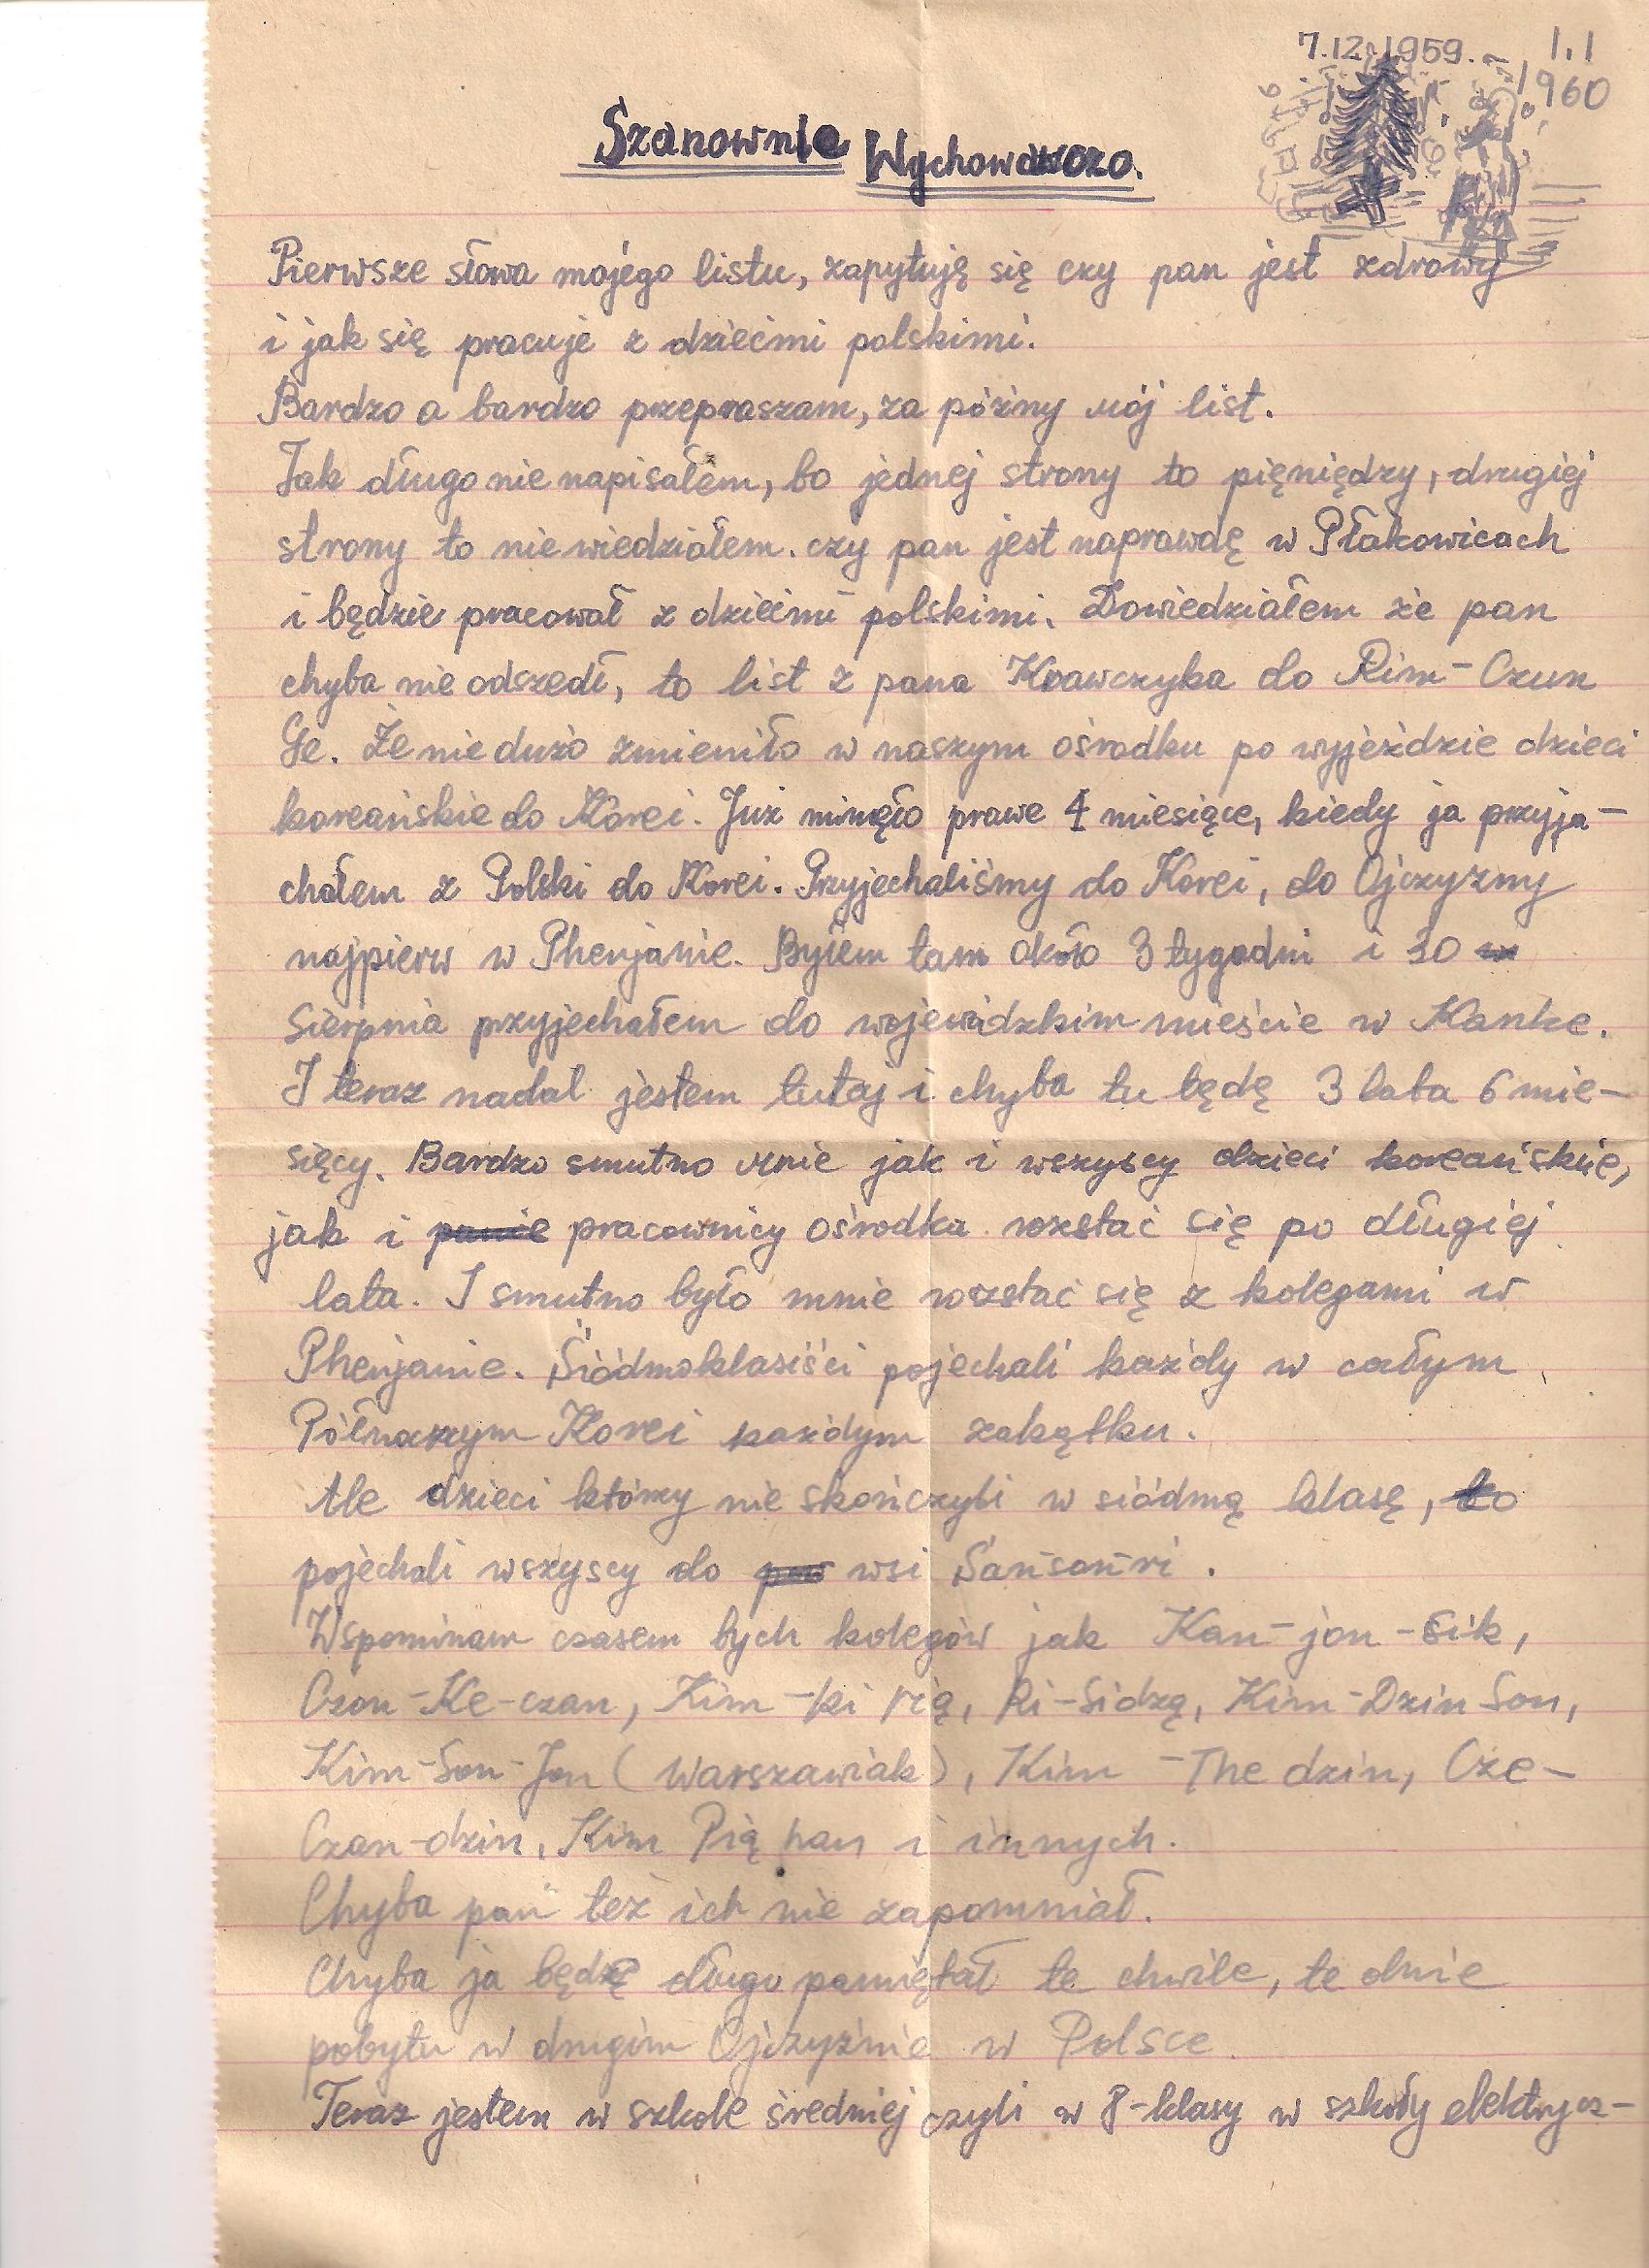 7.12.1959. 1.1
1960
Szanownie Wychowawczo.
Pierwsze słowa mojego listu, zapytuję się czy pan jest zdrowy
i jak się pracuje z dziećmi polskimi.
Bardzo a bardzo przepraszam, za późny mój list.
Jak długo nie napisałem, bo jednej strony to pięniędzy, drugiej
strony to nie wiedziałem. czy pan jest naprawdę w Płakowicach
i będzie pracował z dziećmi polskimi. Dowiedziałem że pan
chyba nie odszedł, to list z pana Krawczyka do Rim-Czun
Ge. Że nie dużo zmieniło w naszym ośrodku po wyjeździe dzieci
koreańskie do Korei. Już minęło prawe 4 miesiące, kiedy ja przyja-
chałem z Polski do Korei. Przyjechaliśmy do Korei, do Ojczyzny
najpierw w Phenjanie. Byłem tam około 3 tygodni i 30
Sierpnia przyjechałem do wojewódzkim mieście w Kanke.
I teraz nadal jestem tutaj i chyba tu będę 3 lata 6 mie-
sięcy. Bardzo smutno mnie jak i wszyscy dzieci koreańskie,
jak i panie pracownicy ośrodka rozstać się po długiej
lata. I smutno było mnie rozstać się z kolegami w
Phenjanie. Siódmoklasiści pojechali każdy w całym
Północzym Korei każdym zakątku.
Ale dzieci którzy nie skończyli w siódmą klasę, to
pojechali wszyscy do wsi Sań-soń-ri.
Wspominam czasem tych kolegów jak Kan-jon-sik,
Czon-Ke-czan, Kim-ki rią, Ri-Sidzą, Kim-Dzin Son,
Kim-Son-Jon (Warszawiak), Kim-The dzin, Cze-
Czan-dzin, Kim Pią han i innych.
Chyba pan też ich nie zapomniał.
Chyba ja będę długo pamiętał te chwile, te dnie
pobytu w drugim Ojczyźnie w Polsce.
Teraz jestem w szkole średniej czyli w 8-klasy w szkoły elektrycz-